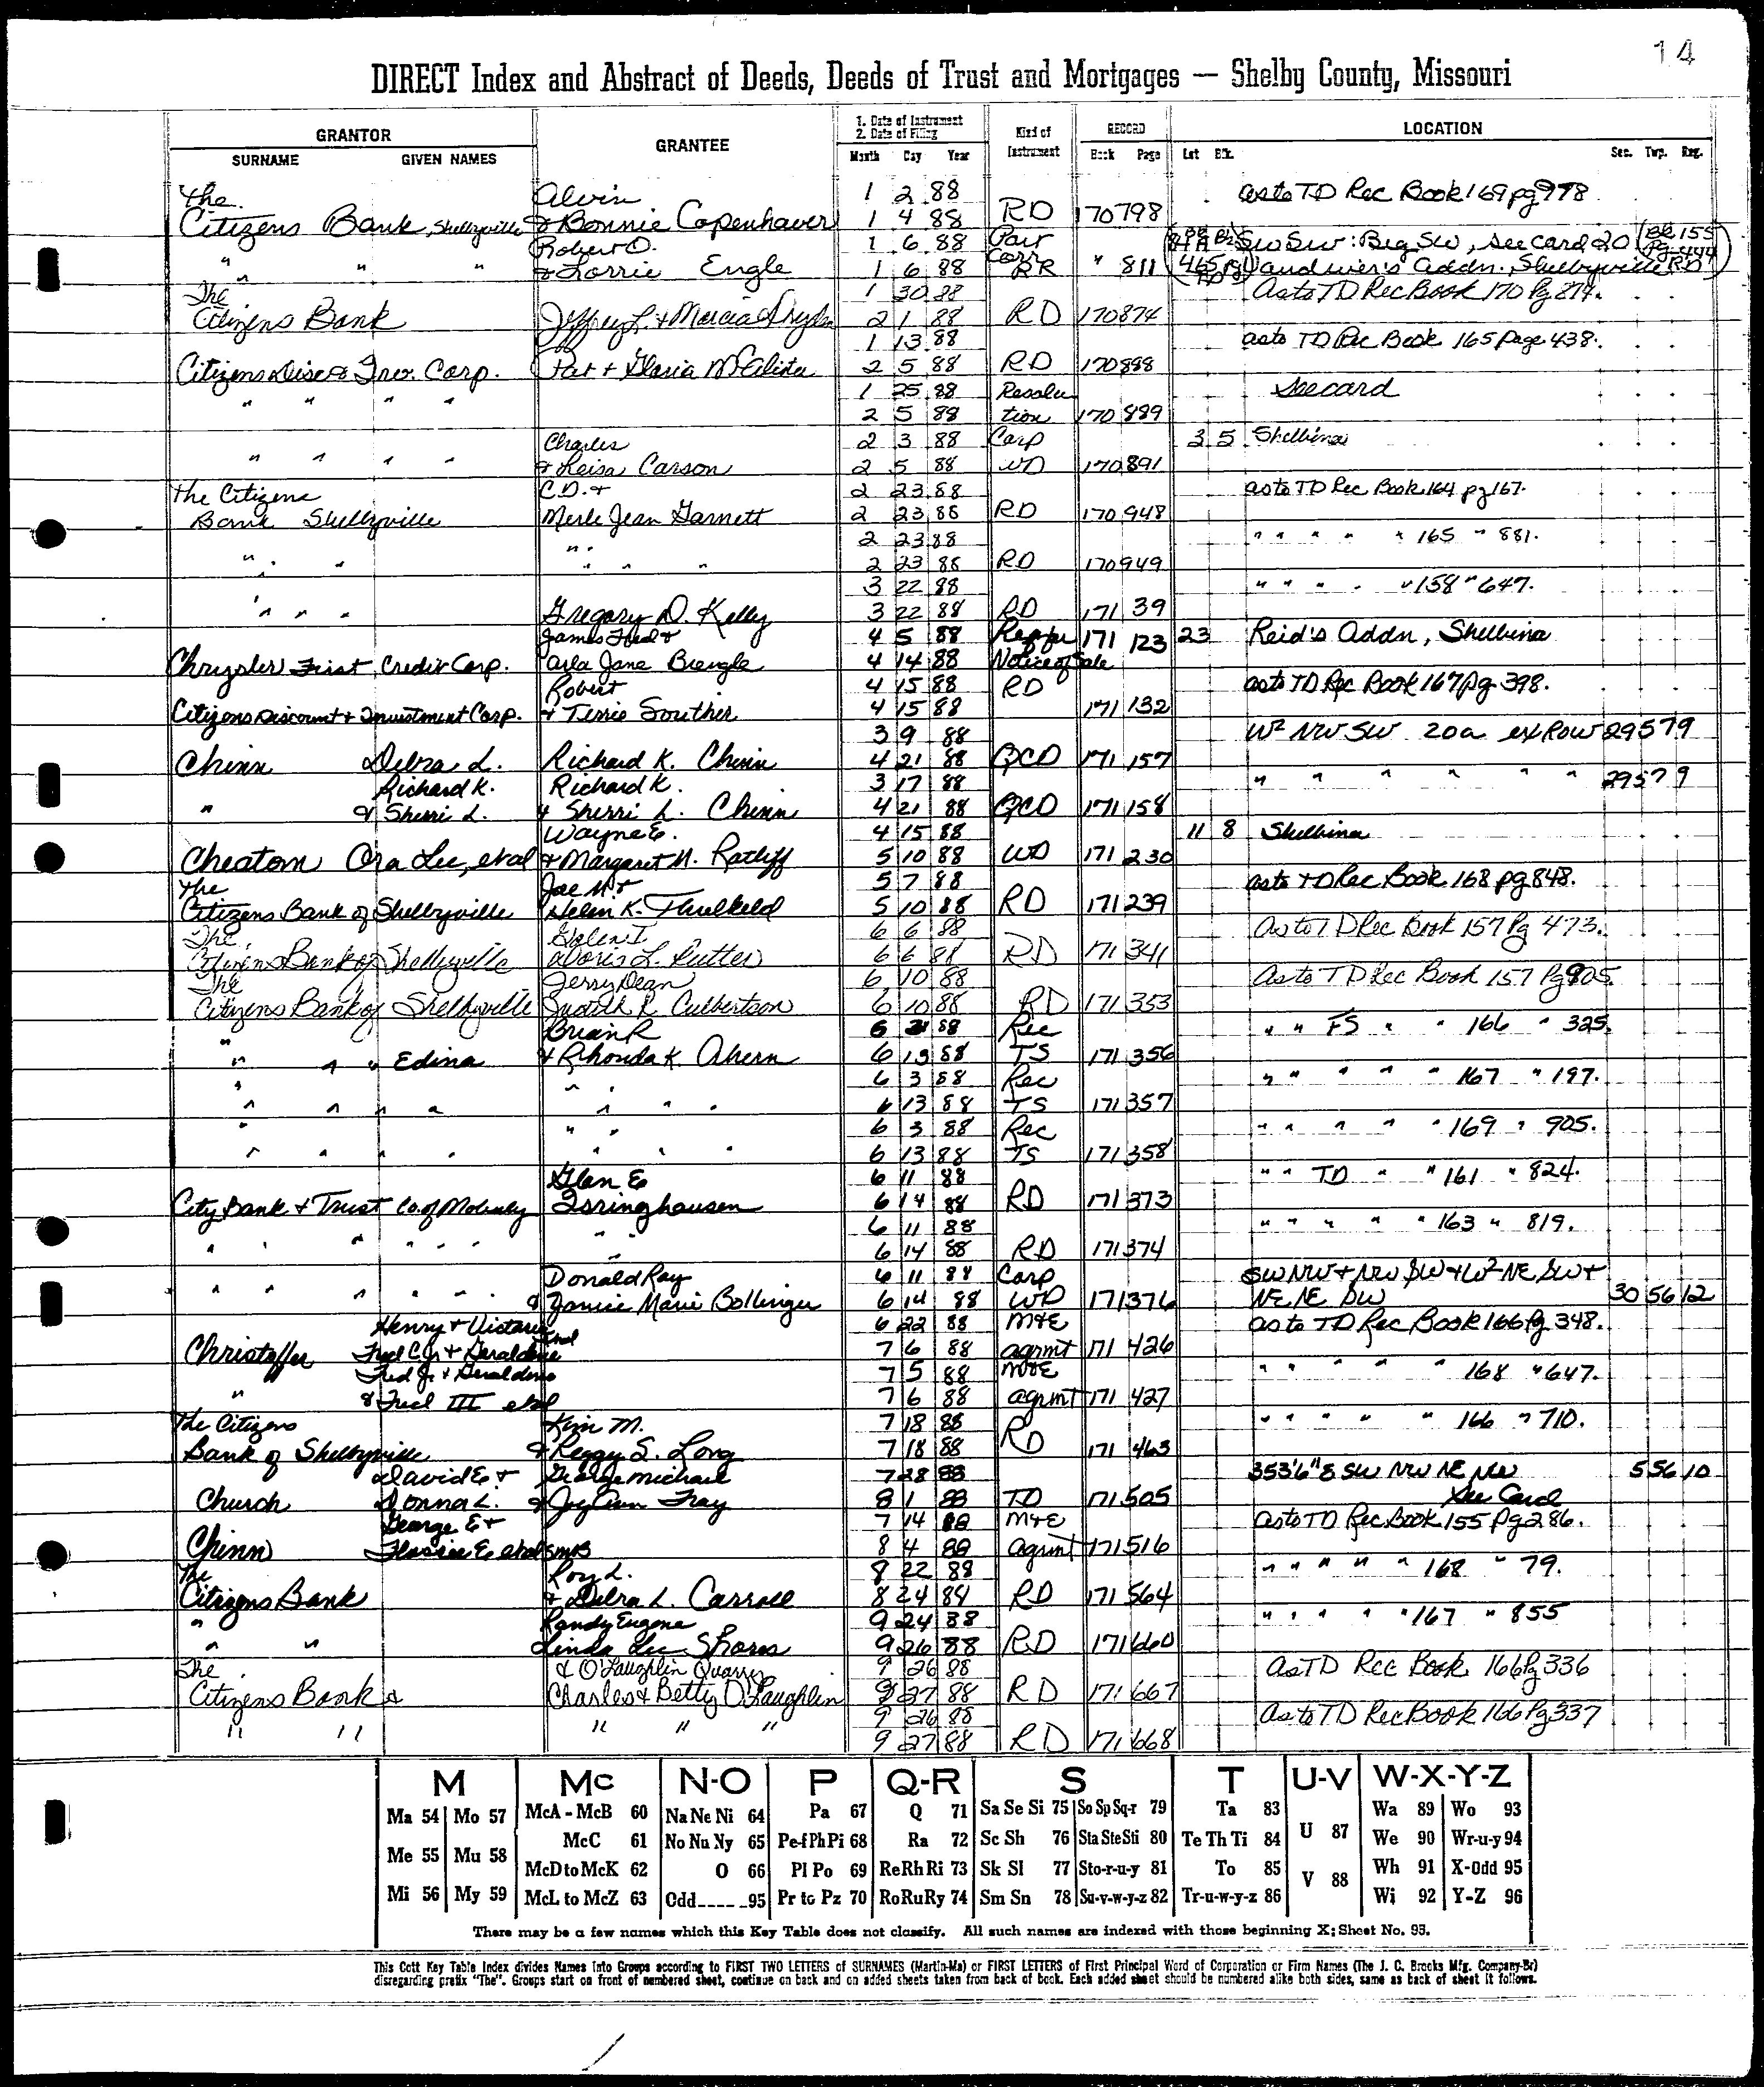 14
DIRECT Index and Abstract of Deeds, Deeds of Trust and Mortgages — Shelby County, Missouri
GRANTOR
SURNAME GIVEN NAMES
GRANTEE
1. Date of Instrument
2. Date of Filing
Month Day Year
Kind of Instrument
RECORD
Book Page
LOCATION
Lot Blk. Sec. Twp. Rng.
The Alvin 1 2 88 as to TD Rec Book 169 pg 978
Citizens Bank, Shelbyville & Bonnie Copenhaver 1 4 88 RD 170 798
Robert O. 1 6 88 Part SW SW: Beg SW, see card 20 (Bk 155 Pg 444
" " " & Lorrie Engle 1 6 88 Corr RR " 811 addn. Shelbyville RD)
The 1 30 88 As to TD Rec Book 170 Pg 874.
Citizens Bank Jeffrey L. & Marcia 2 1 88 RD 170 874
1 13 88 as to TD Rec Book 165 page 438.
Citizens Disc & Inv. Corp. Pat & Gloria 2 5 88 RD 170 888
" " " " 1 25 88 Resolu See card
2 5 88 tion 170 889
Charles 2 3 88 Corp 3 5 Shelbina
" " " " & Leisa Carson 2 5 88 WD 170 891
The Citizens C.D. & 2 23 88 as to TD Rec Book 164 pg 167.
Bank Shelbyville Merle Jean Garnett 2 23 88 RD 170 948
" 2 23 88 " " " " " 165 " 881.
" " " " " 2 23 88 RD 170 949
3 22 88 " " " " " 158 " 647.
" " " " Gregory D. Kelly 3 22 88 RD 171 39
James Fred & 4 5 88 171 123 23 Reid's Addn, Shelbina
Chrysler First Credit Corp. Carla Jane Brengle 4 14 88 Notice of Sale
Robert 4 15 88 RD as to TD Rec Book 167 pg 398.
Citizens Discount & Investment Corp. & Terrie Souther 4 15 88 171 132
3 9 88 W² NW SW 20a ex Row 29 57 9
Chinn Debra L. Richard K. Chinn 4 21 88 QCD 171 157
Richard K. Richard K. 3 17 88 " " " " " " 29 57 9
" & Sherri L. & Sherri L. Chinn 4 21 88 QCD 171 158
Wayne E. 4 15 88 11 8 Shelbina
Cheatom Ora Lee, etal & Margaret N. Ratliff 5 10 88 WD 171 230
The Joe M & 5 7 88 as to TD Rec Book 168 pg 848.
Citizens Bank of Shelbyville Helen K. Threlkeld 5 10 88 RD 171 239
The Galen I 6 6 88 As to TD Rec Book 157 Pg 473.
Citizens Bank of Shelbyville Doris L. Rutter 6 6 88 RD 171 341
The Jerry Dean 6 10 88 As to TD Rec Book 157 Pg 805.
Citizens Bank of Shelbyville Judith R Culbertson 6 10 88 RD 171 353
Brian R 6 3 88 Rec " " FS " " 166 " 325.
" " " Edina & Rhonda K Ahern 6 13 88 TS 171 356
" " " 6 3 88 Rec " " " " " 167 " 197.
" " " " " " " 6 13 88 TS 171 357
" " " 6 3 88 Rec " " " " " 169 " 905.
" " " " " " " 6 13 88 TS 171 358
Glen E 6 11 88 " " TD " " 161 " 824.
City Bank & Trust Co. of Moberly Isringhausen 6 14 88 RD 171 373
" 6 11 88 " " " " " 163 " 819.
" " " " " " 6 14 88 RD 171 374
Donald Ray 6 11 88 Corp SW NW & NW SW & W² NE SW &
" " " " " & Janice Marie Bollinger 6 14 88 WD 171 376 NE NE SW 30 56 12
Henry & Victoria 6 22 88 M&E as to TD Rec Book 166 Pg 348.
Christoffer Fred C. Jr & Geraldine 7 6 88 agrmt 171 426
Fred Jr. & Geraldine 7 5 88 M&E " " " " " 168 " 647.
" & Fred III etal 7 6 88 agrmt 171 427
The Citizens Kim M. 7 18 88 " " " " " 166 " 710.
Bank of Shelbyville & Peggy S. Long 7 18 88 RD 171 463
David E & George Michael 7 28 88 353'6" S SW NW NE NW 5 56 10
Church Donna L. & Joy Ann Fray 8 1 88 TD 171 505 See Card
George E & 7 14 88 M&E as to TD Rec Book 155 Pg 286.
Chinn Flossie E. etal SMB 8 4 88 agrmt 171 516
The Roy L. 8 22 88 " " " " " 168 " 79.
Citizens Bank & Debra L. Carroll 8 24 88 RD 171 564
" Randy Eugene 9 24 88 " " " " " 167 " 855
" " Linda Lee Shores 9 26 88 RD 171 660
The & O'Laughlin Quarry 9 26 88 As TD Rec Book 166 Pg 336
Citizens Bank & Charles & Betty O'Laughlin 9 27 88 RD 171 667
9 26 88 As to TD Rec Book 166 Pg 337
" " " " " 9 27 88 RD 171 668
M Mc N-O P Q-R S T U-V W-X-Y-Z
Ma 54 Mo 57 McA - McB 60 Na Ne Ni 64 Pa 67 Q 71 Sa Se Si 75 So Sp Sq-r 79 Ta 83 U 87 Wa 89 Wo 93
Me 55 Mu 58 McC 61 No Nu Ny 65 Pe-f Ph Pi 68 Ra 72 Sc Sh 76 Sta Ste Sti 80 Te Th Ti 84 We 90 Wr-u-y 94
McD to McK 62 O 66 Pl Po 69 Re Rh Ri 73 Sk Sl 77 Sto-r-u-y 81 To 85 V 88 Wh 91 X-Odd 95
Mi 56 My 59 McL to McZ 63 Odd 95 Pr to Pz 70 Ro Ru Ry 74 Sm Sn 78 Su-v-w-y-z 82 Tr-u-w-y-z 86 Wi 92 Y-Z 96
There may be a few names which this Key Table does not classify. All such names are indexed with those beginning X; Sheet No. 95.
This Cott Key Table Index divides Names into Groups according to FIRST TWO LETTERS of SURNAMES (Martin-Ma) or FIRST LETTERS of First Principal Word of Corporation or Firm Names (The J. C. Brooks Mfg. Company-Br)
disregarding prefix "The". Groups start on front of numbered sheet, continue on back and on added sheets taken from back of book. Each added sheet should be numbered alike both sides, same as back of sheet it follows.